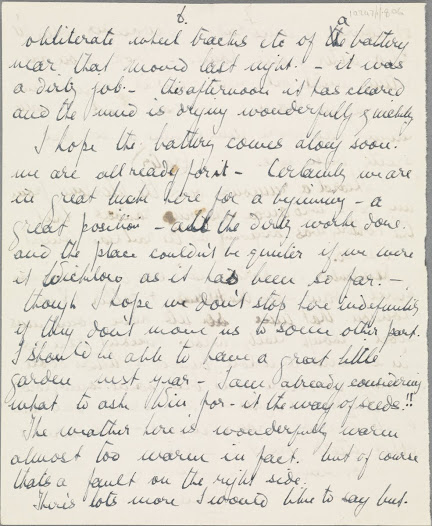 6.
obliterate wheel tracks etc of a battery
near that moved last night. - it was
a dirty job. - this afternoon it has cleared
and the mud is drying wonderfully quickly
I hope the battery comes along soon.
we are all ready for it - Certainly we are
in great luck here for a beginning - a
great position - all the dirty work done.
and the place couldn't be quieter if we were
at as it has been so far. -
though I hope we don't stop here indefinitely
if they don't move us to some other part.
I should be able to have a great little
garden next year - I am already considering
what to ask for - in the way of seeds!!
The weather here is wonderfully warm
almost too warm in fact. but of course
thats a fault on the right side.
There's lots more I would like to say but.